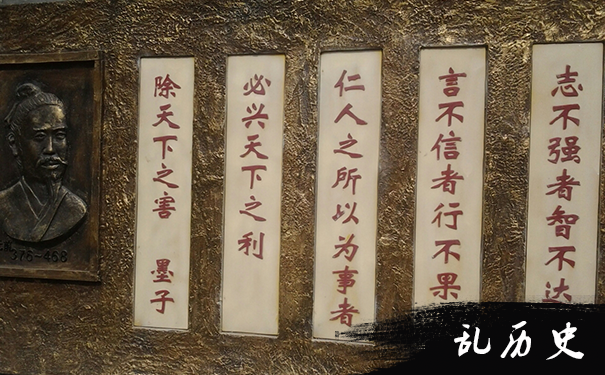 志不强者智不达
言不信者行不果
仁人之所以为事者
必兴天下之利
除天下之害 墨子
376-468
乱历史